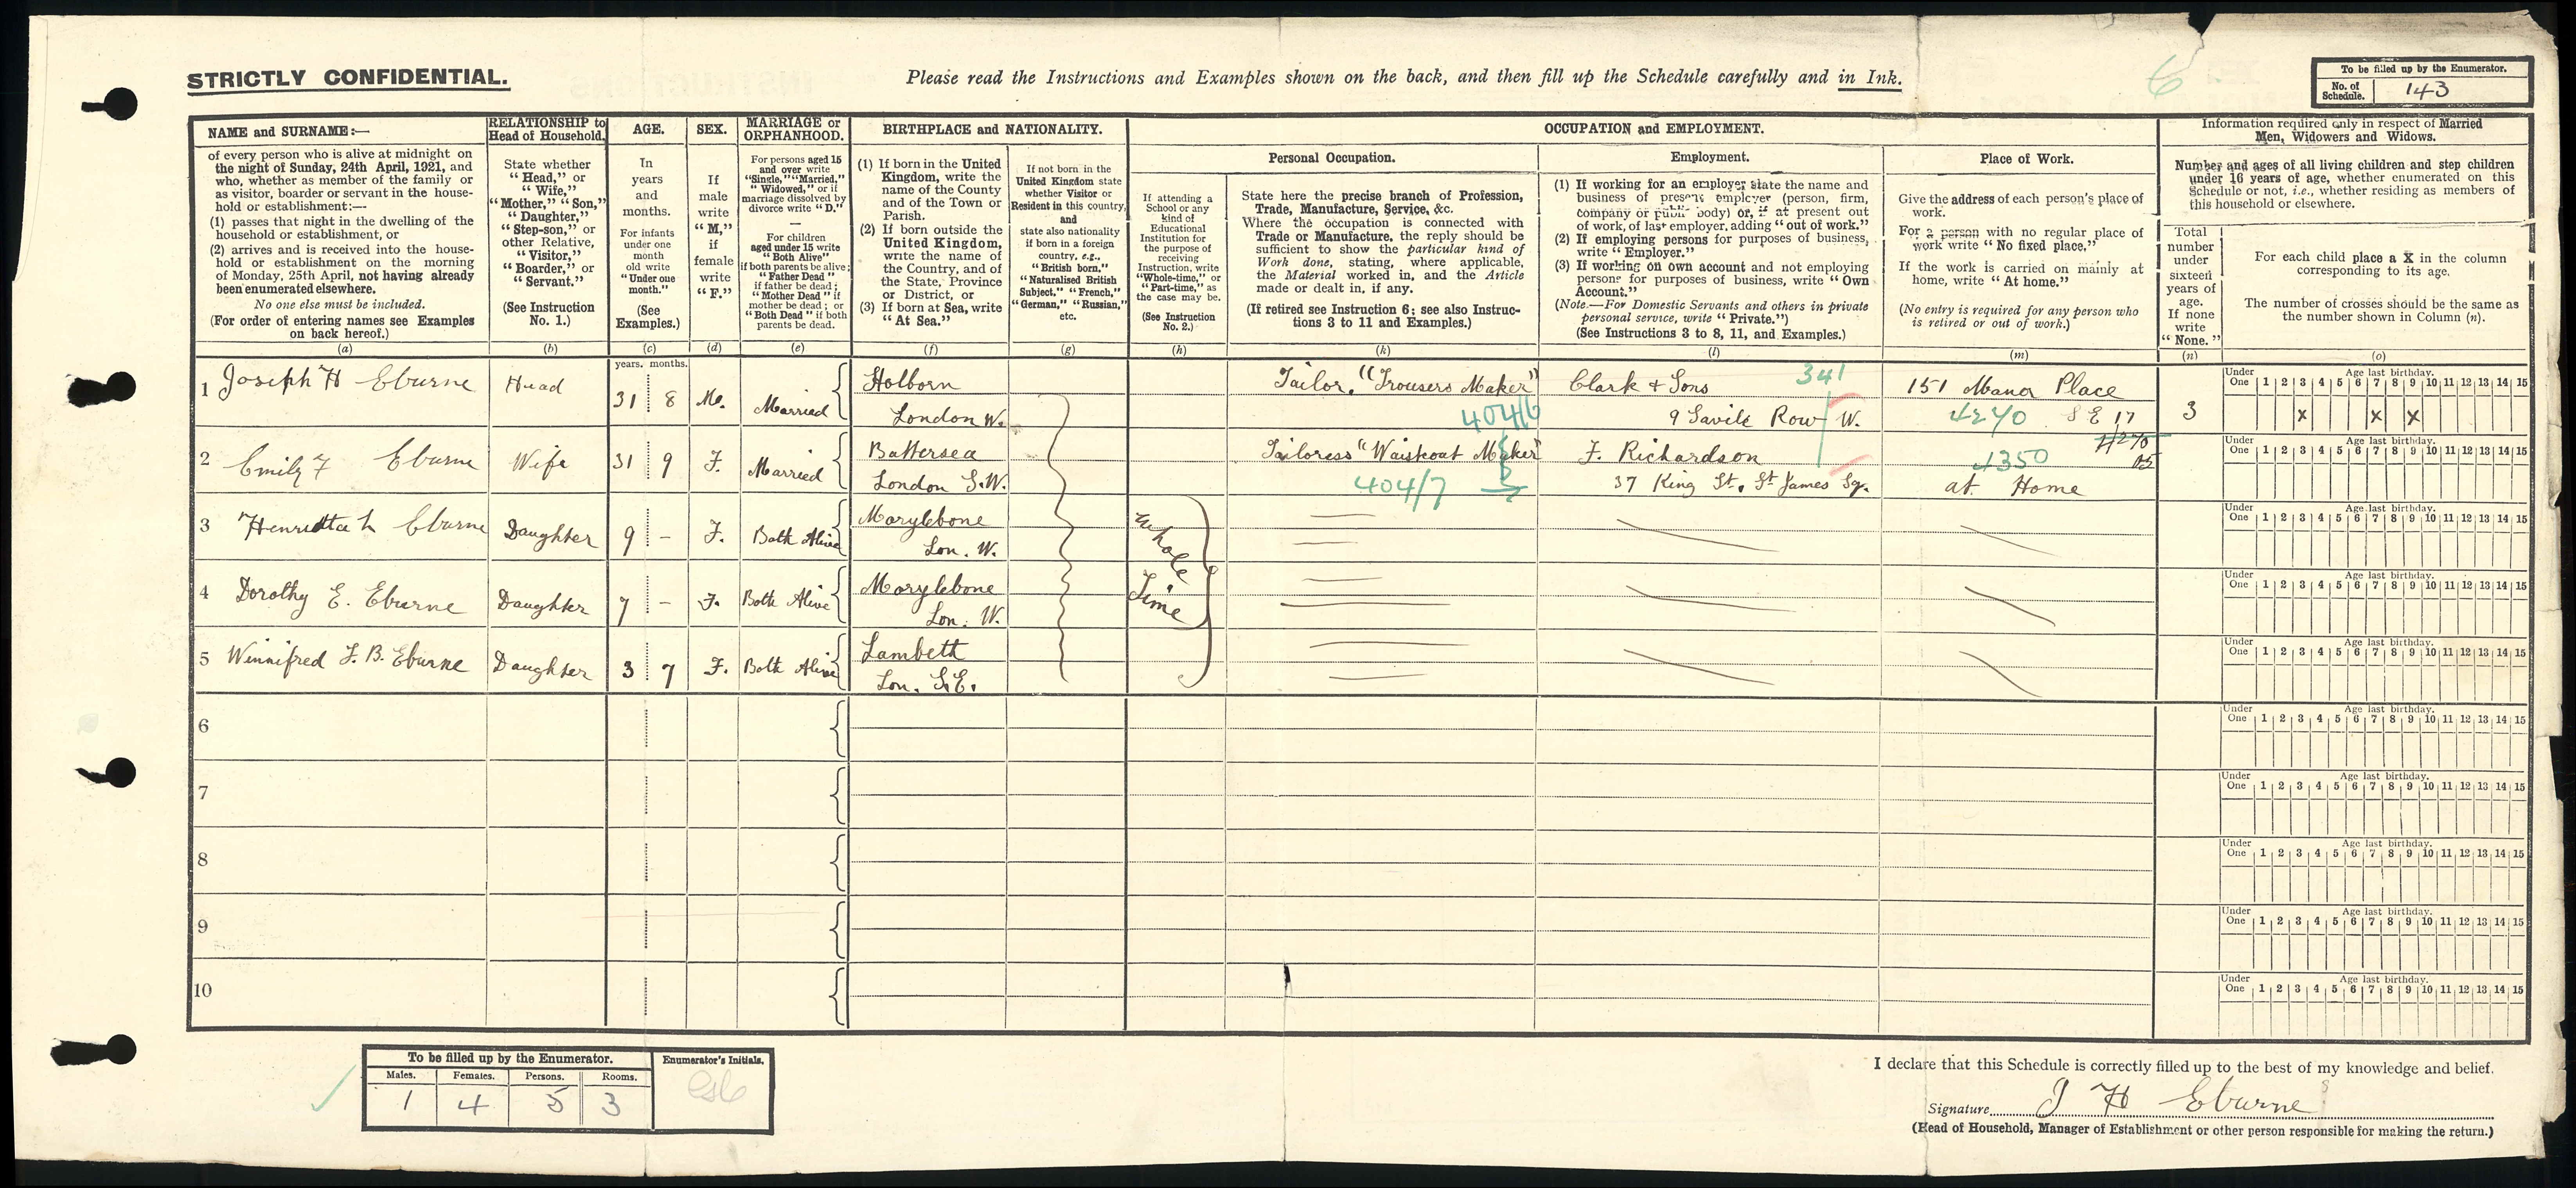 STRICTLY CONFIDENTIAL.
Please read the Instructions and Examples shown on the back, and then fill up the Schedule carefully and in Ink.
6
To be filled up by the Enumerator.
No. of Schedule. 143
NAME and SURNAME:—
of every person who is alive at midnight on
the night of Sunday, 24th April, 1921, and
who, whether as member of the family or
as visitor, boarder or servant in the house-
hold or establishment:—
(1) passes that night in the dwelling of the
household or establishment, or
(2) arrives and is received into the house-
hold or establishment on the morning
of Monday, 25th April, not having already
been enumerated elsewhere.
No one else must be included.
(For order of entering names see Examples
on back hereof.)
(a)
RELATIONSHIP to
Head of Household.
State whether
"Head," or
"Wife,"
"Mother," "Son,"
"Daughter,"
"Step-son," or
other Relative,
"Visitor,"
"Boarder," or
"Servant."
(See Instruction
No. 1.)
(b)
AGE.
In
years
and
months.
For infants
under one
month
old write
"Under one
month."
(See
Examples.)
(c)
years. months.
SEX.
If
male
write
"M,"
if
female
write
"F."
(d)
MARRIAGE or
ORPHANHOOD.
For persons aged 15
and over write
"Single," "Married,"
"Widowed," or if
marriage dissolved by
divorce write "D."
—
For children
aged under 15 write
"Both Alive"
if both parents be alive;
"Father Dead"
if father be dead;
"Mother Dead" if
mother be dead; or
"Both Dead" if both
parents be dead.
(e)
BIRTHPLACE and NATIONALITY.
(1) If born in the United
Kingdom, write the
name of the County
and of the Town or
Parish.
(2) If born outside the
United Kingdom,
write the name of
the Country, and of
the State, Province
or District, or
(3) If born at Sea, write
"At Sea."
(f)
If not born in the
United Kingdom state
whether Visitor or
Resident in this country,
and
state also nationality
if born in a foreign
country, e.g.,
"British born,"
"Naturalised British
Subject," "French,"
"German," "Russian,"
etc.
(g)
OCCUPATION and EMPLOYMENT.
If attending a
School or any
kind of
Educational
Institution for
the purpose of
receiving
Instruction, write
"Whole-time," or
"Part-time," as
the case may be.
(See Instruction
No. 2.)
(h)
Personal Occupation.
State here the precise branch of Profession,
Trade, Manufacture, Service, &c.
Where the occupation is connected with
Trade or Manufacture, the reply should be
sufficient to show the particular kind of
Work done, stating, where applicable,
the Material worked in, and the Article
made or dealt in, if any.
(If retired see Instruction 6; see also Instruc-
tions 3 to 11 and Examples.)
(k)
Employment.
(1) If working for an employer state the name and
business of present employer (person, firm,
company or public body) or, if at present out
of work, of last employer, adding "out of work."
(2) If employing persons for purposes of business,
write "Employer."
(3) If working on own account and not employing
persons for purposes of business, write "Own
Account."
(Note.—For Domestic Servants and others in private
personal service, write "Private.")
(See Instructions 3 to 8, 11, and Examples.)
(l)
Place of Work.
Give the address of each person's place of
work.
For a person with no regular place of
work write "No fixed place."
If the work is carried on mainly at
home, write "At home."
(No entry is required for any person who
is retired or out of work.)
(m)
Information required only in respect of Married
Men, Widowers and Widows.
Number and ages of all living children and step children
under 16 years of age, whether enumerated on this
Schedule or not, i.e., whether residing as members of
this household or elsewhere.
Total
number
under
sixteen
years of
age.
If none
write
"None."
(n)
For each child place a X in the column
corresponding to its age.
The number of crosses should be the same as
the number shown in Column (n).
(o)
1 Joseph H Eburne Head 31 8 M. Married Holborn Tailor. "Trousers Maker" Clark & Sons 341 151 Manor Place 3
London W. 404/6 9 Savile Row W. 4240 S E 17
Under One 1 2 3 4 5 6 7 8 9 10 11 12 13 14 15 Age last birthday.
x x x
2 Emily F Eburne Wife 31 9 F. Married Battersea Tailoress "Waistcoat Maker" F. Richardson 4350
London S.W. 404/7 37 King St. St James Sq. at Home
Under One 1 2 3 4 5 6 7 8 9 10 11 12 13 14 15 Age last birthday.
3 Henrietta L Eburne Daughter 9 - F. Both Alive Marylebone Whole
Lon. W.
Under One 1 2 3 4 5 6 7 8 9 10 11 12 13 14 15 Age last birthday.
4 Dorothy E. Eburne Daughter 7 - F. Both Alive Marylebone Time
Lon. W.
Under One 1 2 3 4 5 6 7 8 9 10 11 12 13 14 15 Age last birthday.
5 Winnifred F. B. Eburne Daughter 3 7 F. Both Alive Lambeth
Lon. S.E.
Under One 1 2 3 4 5 6 7 8 9 10 11 12 13 14 15 Age last birthday.
6
Under One 1 2 3 4 5 6 7 8 9 10 11 12 13 14 15 Age last birthday.
7
Under One 1 2 3 4 5 6 7 8 9 10 11 12 13 14 15 Age last birthday.
8
Under One 1 2 3 4 5 6 7 8 9 10 11 12 13 14 15 Age last birthday.
9
Under One 1 2 3 4 5 6 7 8 9 10 11 12 13 14 15 Age last birthday.
10
Under One 1 2 3 4 5 6 7 8 9 10 11 12 13 14 15 Age last birthday.
To be filled up by the Enumerator.
Males. Females. Persons. Rooms.
1 4 5 3
Enumerator's Initials.
I declare that this Schedule is correctly filled up to the best of my knowledge and belief.
Signature J H Eburne
(Head of Household, Manager of Establishment or other person responsible for making the return.)